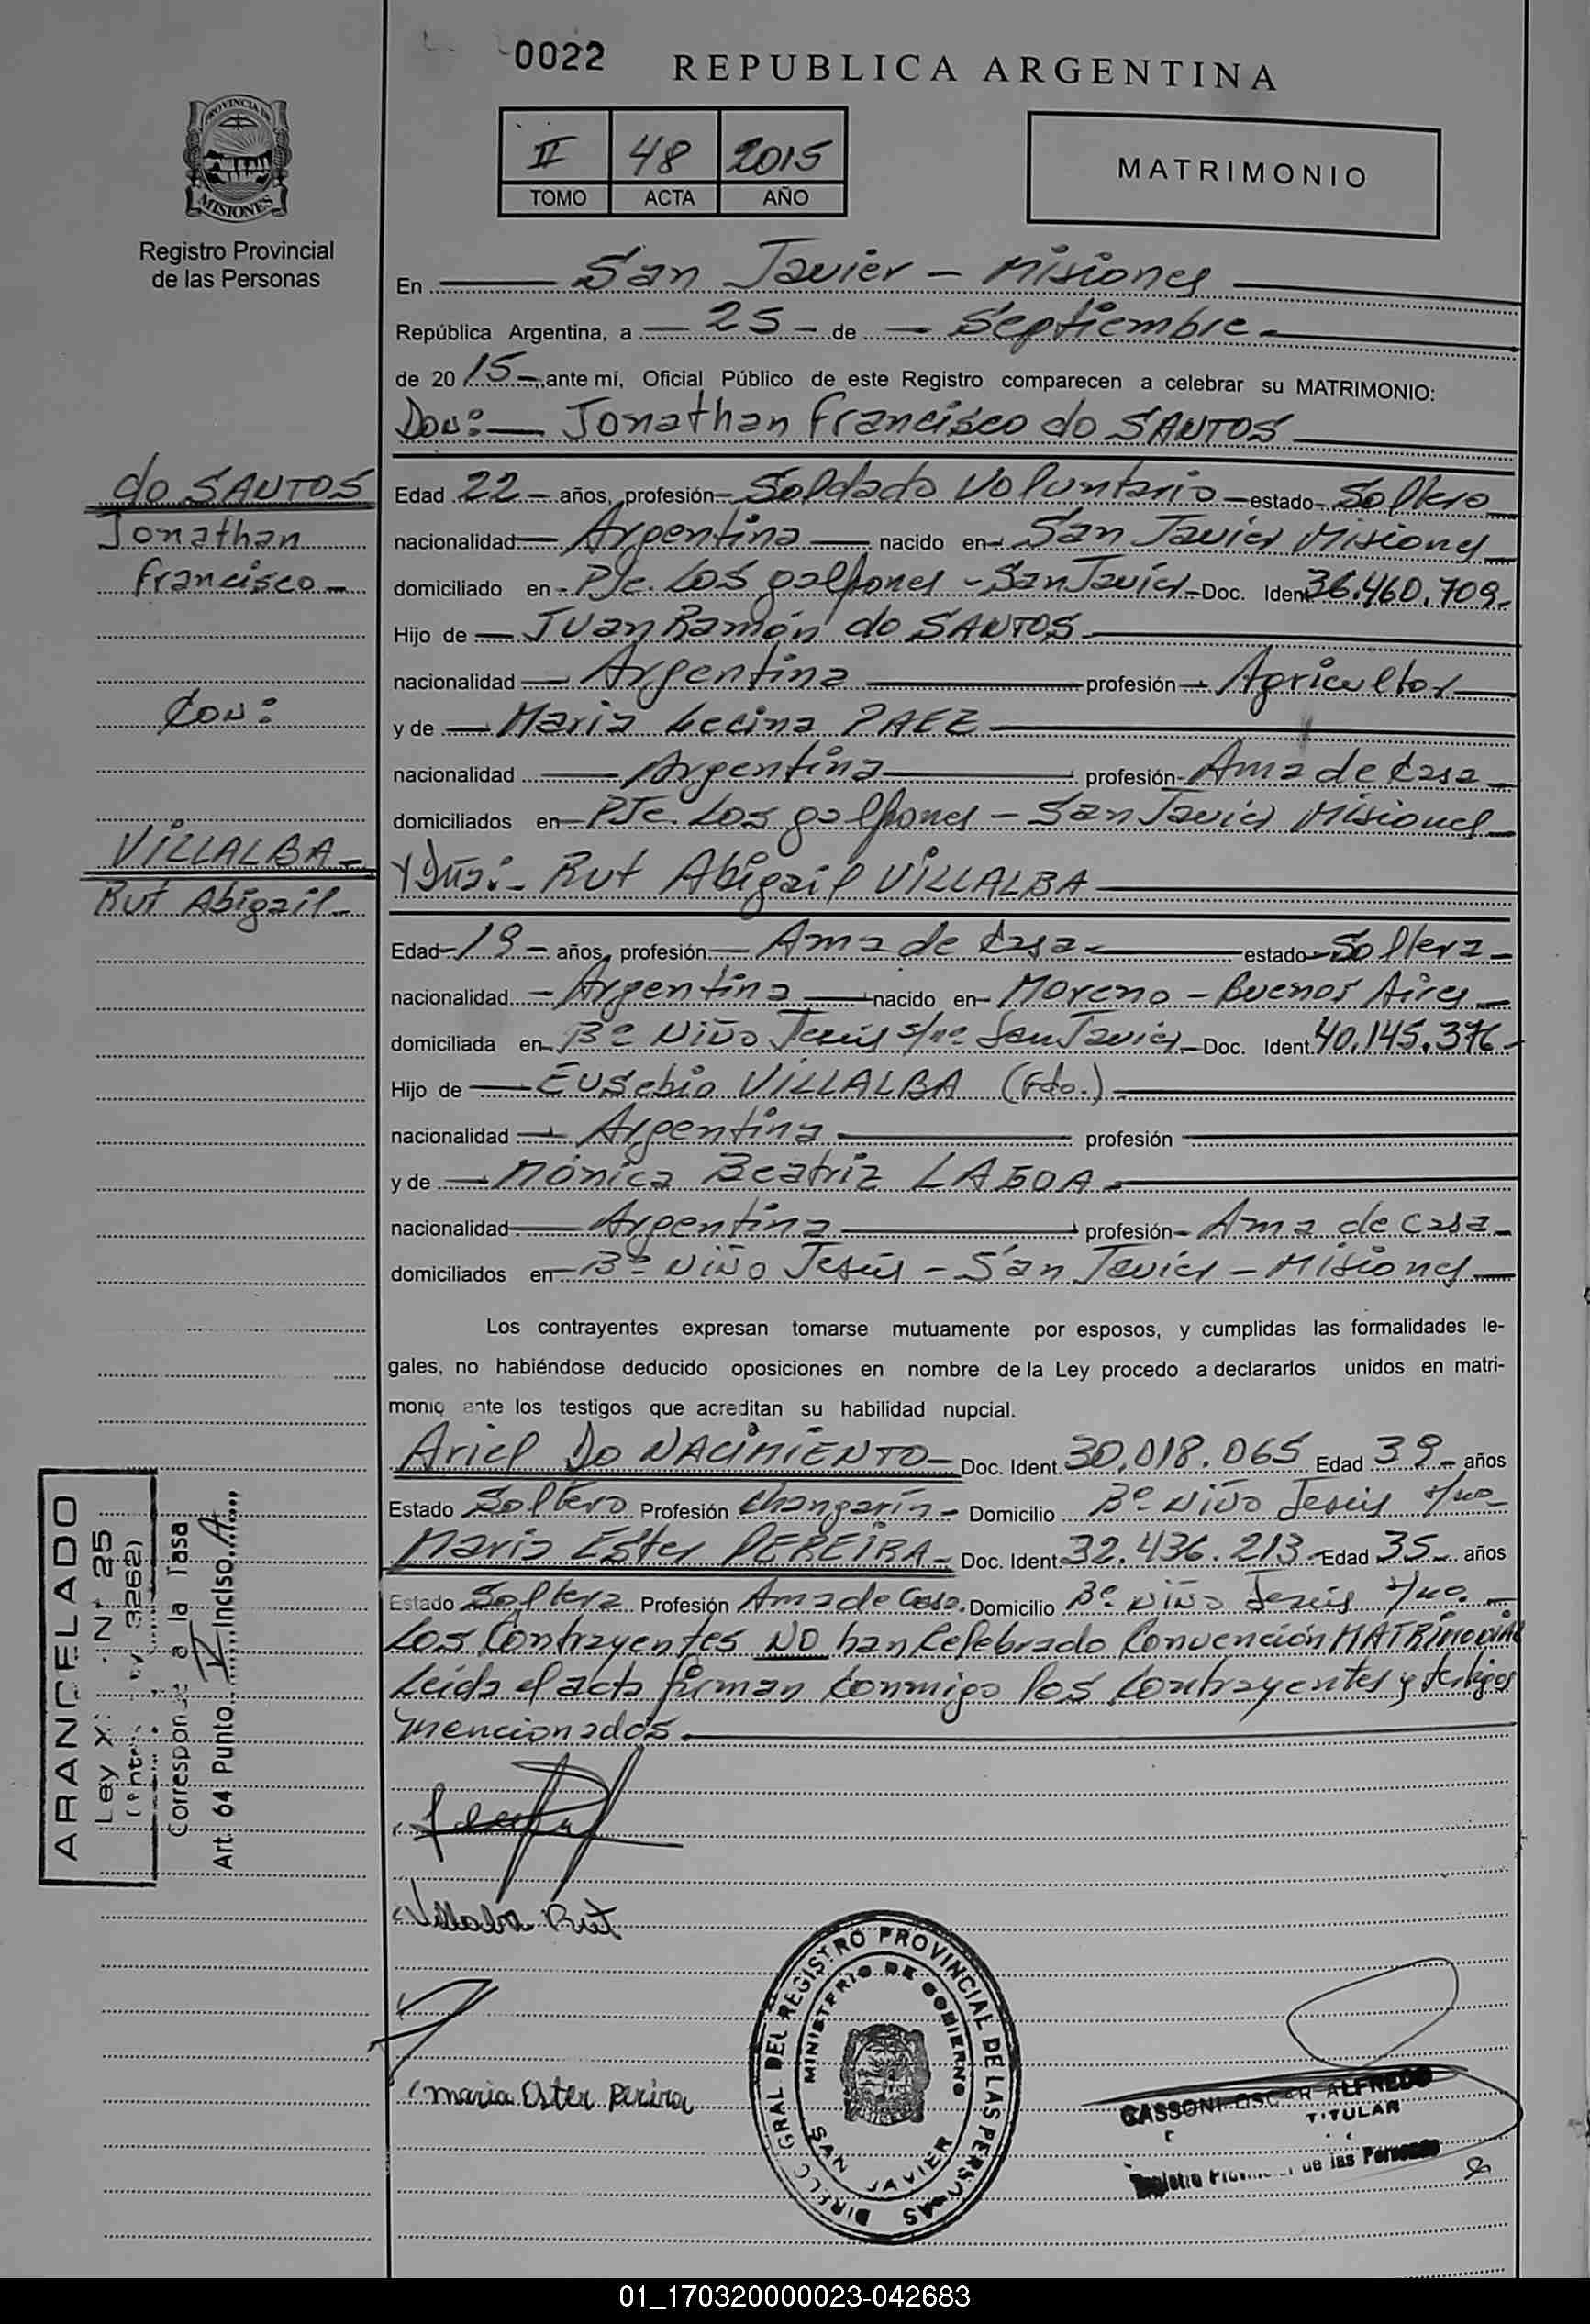 0022 REPUBLICA ARGENTINA
PROVINCIA DE
MISIONES
Registro Provincial
de las Personas
II 48 2015
TOMO ACTA AÑO
MATRIMONIO
En San Javier - Misiones
República Argentina, a 25 de Septiembre
de 20 15 ante mí, Oficial Público de este Registro comparecen a celebrar su MATRIMONIO:
Don: Jonathan Francisco do SANTOS
do SANTOS
Jonathan
Francisco
Con:
VILLALBA
Rut Abigail
Edad 22 años, profesión Soldado Voluntario estado Soltero
nacionalidad Argentina nacido en San Javier Misiones
domiciliado en PJe. Los galpones - San Javier Doc. Ident 36.460.709
Hijo de Juan Ramón do SANTOS
nacionalidad Argentina profesión Agricultor
y de Maria Lecina PAEZ
nacionalidad Argentina profesión Ama de Casa
domiciliados en PJe. Los galpones - San Javier Misiones
Y Dña: Rut Abigail VILLALBA
Edad 19 años, profesión Ama de Casa estado Soltera
nacionalidad Argentina nacido en Moreno - Buenos Aires
domiciliada en Bº Niño Jesús s/nº San Javier Doc. Ident. 40.145.376
Hijo de Eusebio VILLALBA (Fdo.)
nacionalidad Argentina profesión
y de Mónica Beatriz
nacionalidad Argentina profesión Ama de Casa
domiciliados en Bº Niño Jesús - San Javier - Misiones
Los contrayentes expresan tomarse mutuamente por esposos, y cumplidas las formalidades le-
gales, no habiéndose deducido oposiciones en nombre de la Ley procedo a declararlos unidos en matri-
monio ante los testigos que acreditan su habilidad nupcial.
Ariel Do NACIMIENTO Doc. Ident. 30.018.065 Edad 39 años
Estado Soltero Profesión Changarín Domicilio Bº Niño Jesús s/nº
Maria Ester PEREIRA Doc. Ident. 32.436.213 Edad 35 años
Estado Soltera Profesión Ama de Casa Domicilio Bº Niño Jesús s/nº
Los Contrayentes NO han Celebrado Convención MATRIMONIAL
Leída el acta firman conmigo los contrayentes y testigos
mencionados.
ARANCELADO
Ley X: Nº 25
3262)
Corresponde a la Tasa
Art. 64 Punto IV Inciso A
Villalba Rut
maria Ester Pereira
DIRECC GRAL DEL REGISTRO PROVINCIAL DE LAS PERSONAS
MINISTERIO DE GOBIERNO
SAN JAVIER
GASSONI OSCAR ALFREDO
TITULAR
Registro Provincial de las Personas
01_170320000023-042683